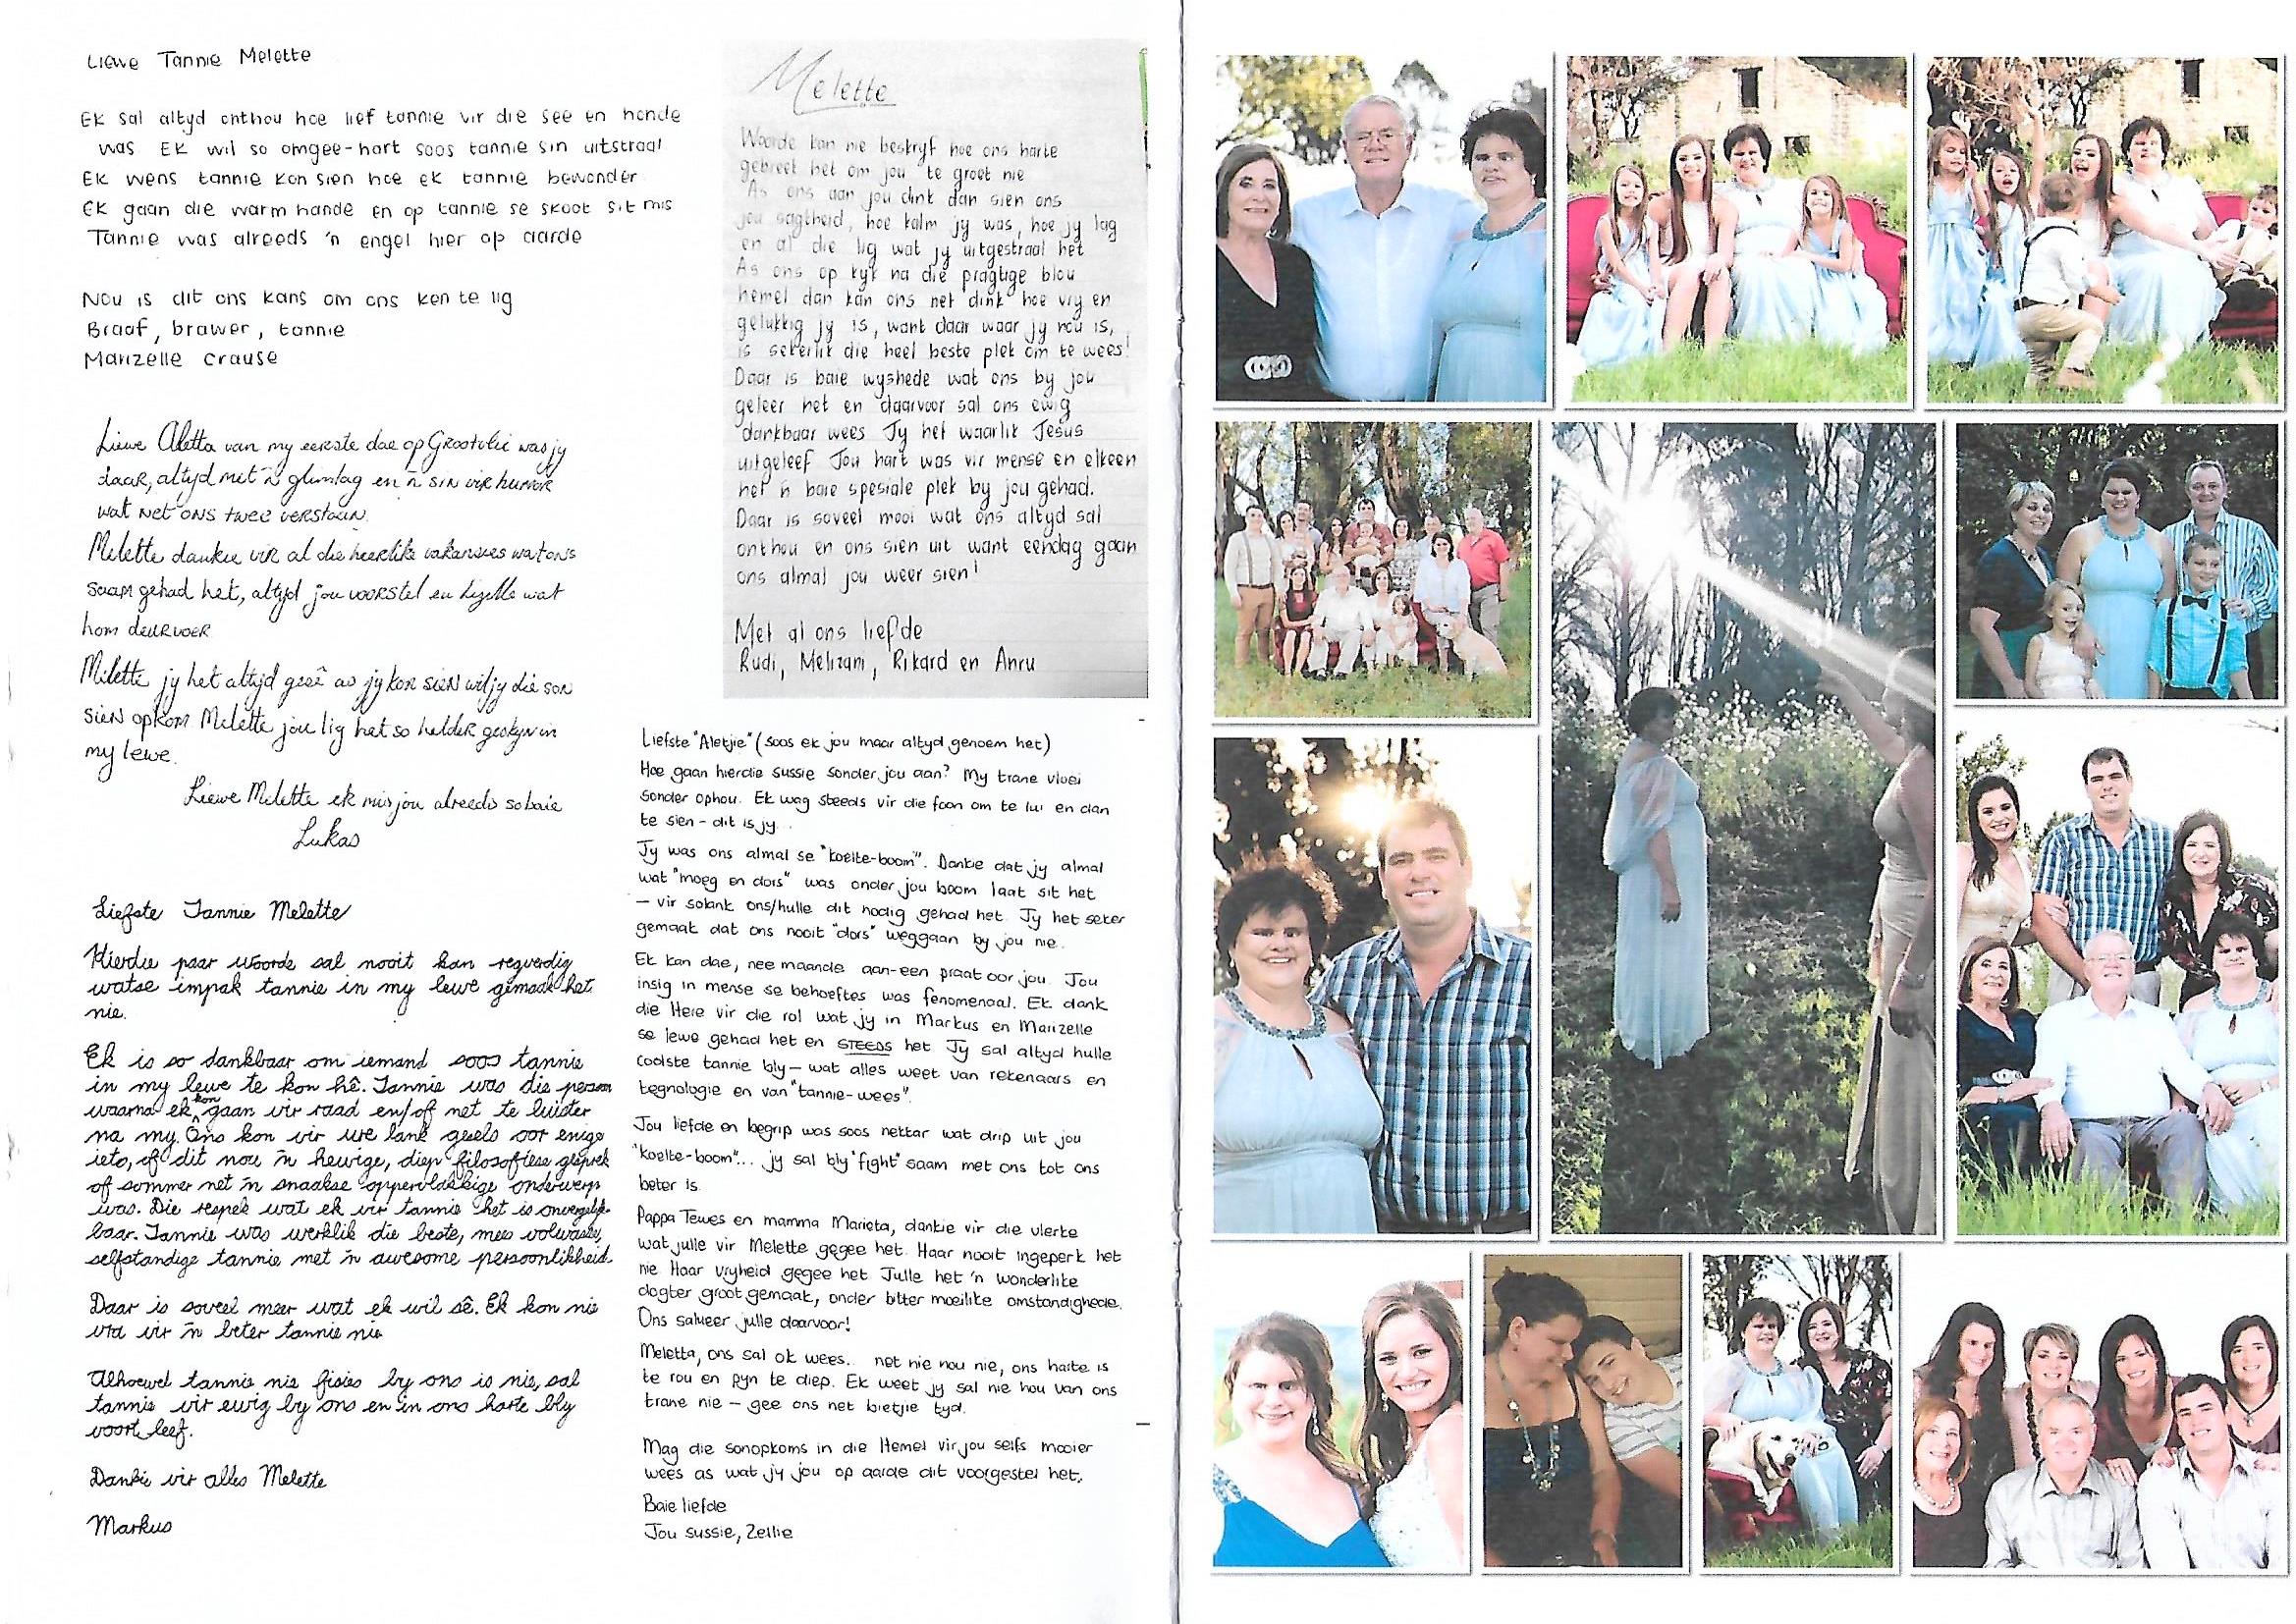 Liewe Tannie Melette
Ek sal altyd onthou hoe lief tannie vir die see en honde
was Ek wil so omgee-hart soos tannie s'n uitstraal
Ek wens tannie kon sien hoe ek tannie bewonder
Ek gaan die warm hande en op tannie se skoot sit mis
Tannie was alreeds 'n engel hier op aarde
Nou is dit ons kans om ons ken te lig
Braaf, brawer, tannie
Marizelle Crause
Liewe Aletta van my eerste dae op Grootvlei was jy
daar, altyd met 'n glimlag en 'n sin vir humor
wat net ons twee verstaan.
Melette dankie vir al die heerlike vakansies wat ons
saam gehad het, altyd jou voorstel en Lizelle wat
hom deurvoer
Melette jy het altyd gesê as jy kon sien wil jy die son
sien opkom Melette jou lig het so helder geskyn in
my lewe.
Liewe Melette ek mis jou alreeds so baie
Lukas
Liefste Tannie Melette
Hierdie paar woorde sal nooit kan regverdig
watse impak tannie in my lewe gemaak het
nie.
Ek is so dankbaar om iemand soos tannie
in my lewe te kon hê. Tannie was die persoon
waarna ek kon gaan vir raad en/of net te luister
na my. Ons kon vir ure lank gesels oor enige
iets, of dit nou 'n hewige, diep filosofiese gesprek
of sommer net 'n snaakse oppervlakkige onderwerp
was. Die respek wat ek vir tannie het is onvergelyk-
baar. Tannie was werklik die beste, mees volwasse,
selfstandige tannie met 'n awesome persoonlikheid.
Daar is soveel meer wat ek wil sê. Ek kon nie
vra vir 'n beter tannie nie
Alhoewel tannie nie fisies by ons is nie, sal
tannie vir ewig by ons en in ons harte bly
voort leef.
Dankie vir alles Melette
Markus
Melette
Woorde kan nie beskryf hoe ons harte
gebreek het om jou te groet nie
As ons aan jou dink dan sien ons
jou sagtheid, hoe kalm jy was, hoe jy lag
en al die lig wat jy uitgestraal het
As ons op kyk na die pragtige blou
hemel dan kan ons net dink hoe vry en
gelukkig jy is, want daar waar jy nou is,
is sekerlik die heel beste plek om te wees!
Daar is baie wyshede wat ons by jou
geleer het en daarvoor sal ons ewig
dankbaar wees Jy het waarlik Jesus
uitgeleef Jou hart was vir mense en elkeen
het 'n baie spesiale plek by jou gehad.
Daar is soveel mooi wat ons altyd sal
onthou en ons sien uit want eendag gaan
ons almal jou weer sien!
Met al ons liefde
Rudi, Melizani, Rikard en Anru
Liefste "Aletjie" (soos ek jou maar altyd genoem het)
Hoe gaan hierdie sussie sonder jou aan? My trane vloei
sonder ophou. Ek wag steeds vir die foon om te lui en dan
te sien - dit is jy.
Jy was ons almal se "koelte-boom". Dankie dat jy almal
wat "moeg en dors" was onder jou boom laat sit het
- vir solank ons/hulle dit nodig gehad het. Jy het seker
gemaak dat ons nooit "dors" weggaan by jou nie.
Ek kan dae, nee maande aan-een praat oor jou. Jou
insig in mense se behoeftes was fenomenaal. Ek dank
die Here vir die rol wat jy in Markus en Marizelle
se lewe gehad het en STEEDS het Jy sal altyd hulle
coolste tannie bly - wat alles weet van rekenaars en
tegnologie en van "tannie-wees".
Jou liefde en begrip was soos nektar wat drip uit jou
"koelte-boom"... jy sal bly "fight" saam met ons tot ons
beter is
Pappa Tewes en mamma Marieta, dankie vir die vlerke
wat julle vir Melette gegee het. Haar nooit ingeperk het
nie Haar vryheid gegee het Julle het 'n wonderlike
dogter groot gemaak, onder bitter moeilike omstandighede.
Ons salueer julle daarvoor!
Meletta, ons sal ok wees.. net nie nou nie, ons harte is
te rou en pyn te diep. Ek weet jy sal nie hou van ons
trane nie - gee ons net bietjie tyd.
Mag die sonopkoms in die Hemel vir jou selfs mooier
wees as wat jy jou op aarde dit voorgestel het.
Baie liefde
Jou sussie, Zellie